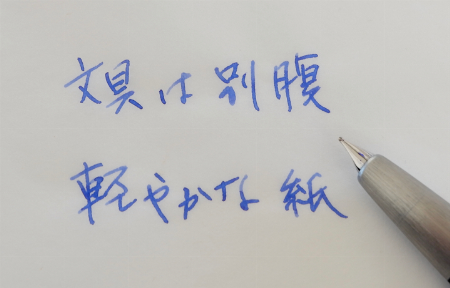 文具は別腹
軽やかな紙